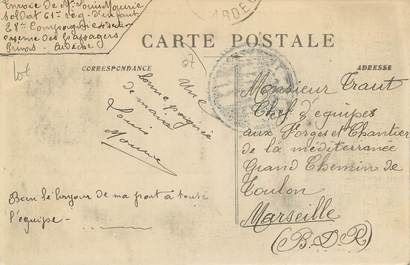 Envoie de Mr Louis Mourrie
Soldat 61e Rég. d'Infant
28me Compagnie
Caserne des Passagers
Privas - Ardèche
CARTE POSTALE
CORRESPONDANCE
ADRESSE
lot
et Une
bonne poignée
de main
Louis
Bien le bonjour de ma part à toute
l'équipe
Monsieur Traut
Chef d'équipes
aux Forges et Chantier
de la méditerranée
Grand Chemin de
Toulon
Marseille
(B.D.R)